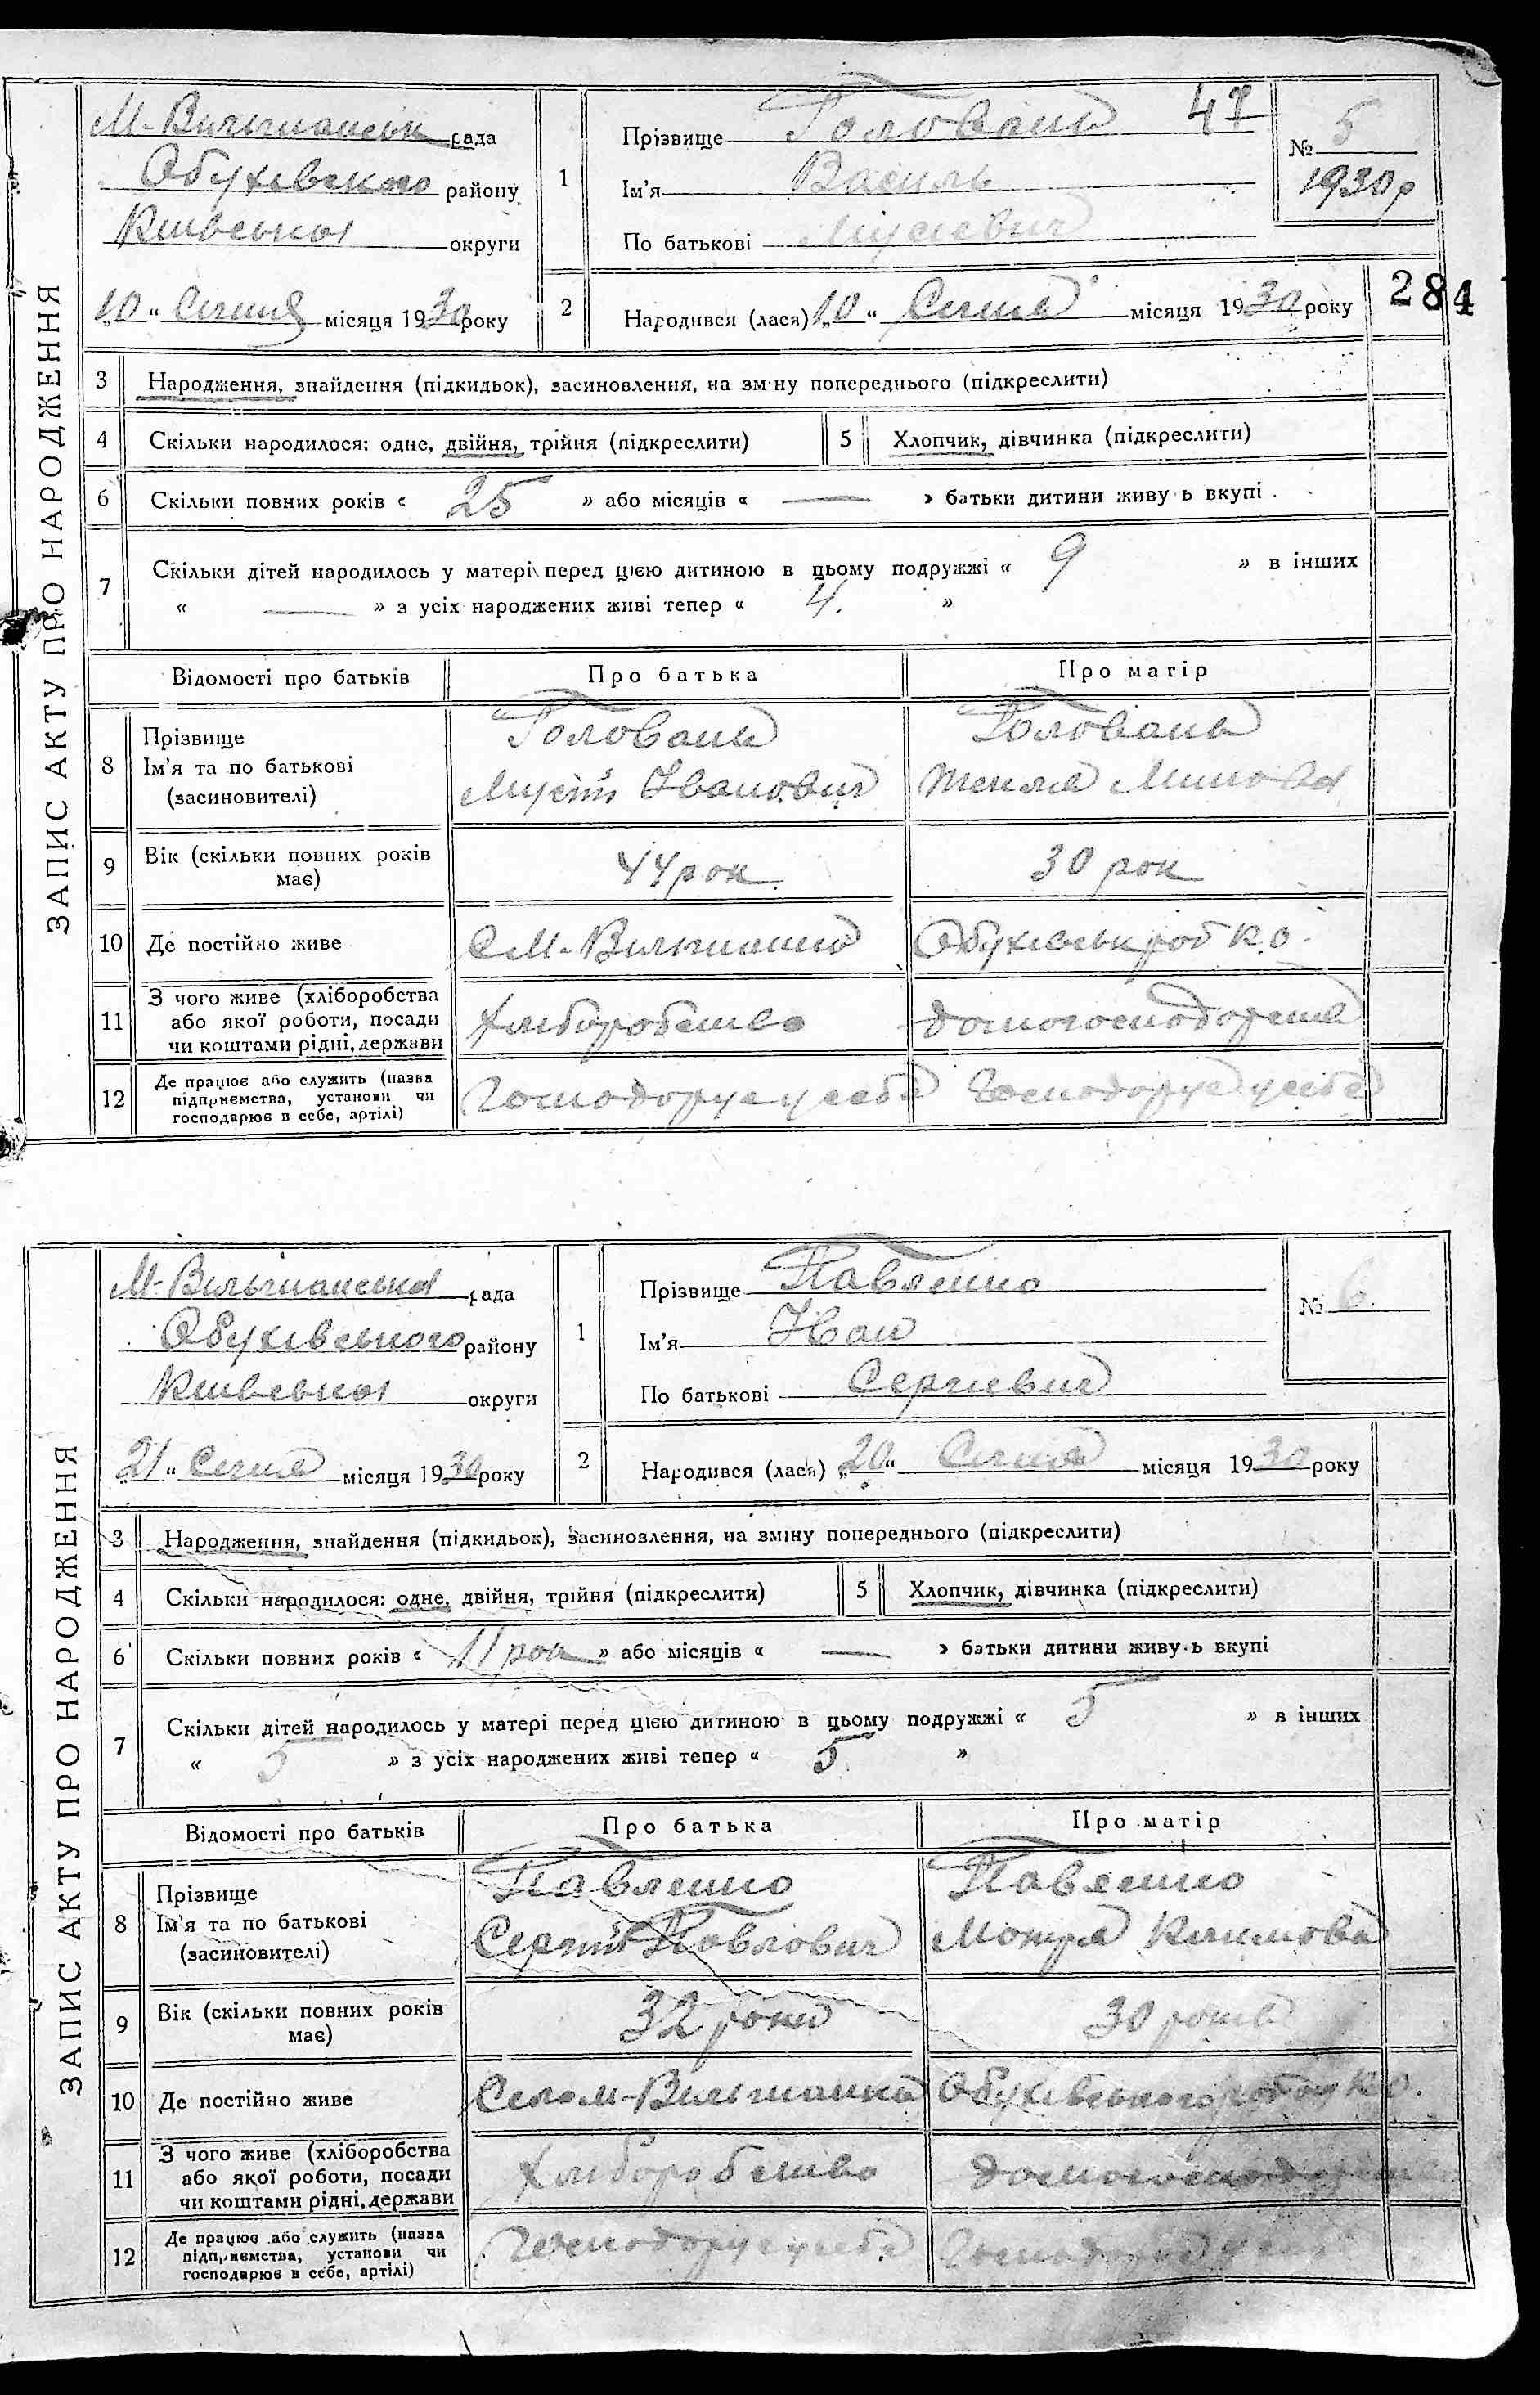 ЗАПИС АКТУ ПРО НАРОДЖЕННЯ
М-Вильшанськ рада
Обухівского району
Київської округи
"10" Січня місяця 1930 року
1
Прізвище Головань 47
Ім'я Василь
По батькові Мусієвич
№ 5
1930 р
2
Народився (лася) "10" Січня місяця 1930 року
284
3 Народження, знайдення (підкидьок), засиновлення, на зміну попереднього (підкреслити)
4 Скільки народилося: одне, двійня, трійня (підкреслити) 5 Хлопчик, дівчинка (підкреслити)
6 Скільки повних років « 25 » або місяців « — » батьки дитини живуть вкупі.
7 Скільки дітей народилось у матері перед цією дитиною в цьому подружжі « 9 » в інших
« — » з усіх народжених живі тепер « 4. »
Відомості про батьків Про батька Про матір
8 Прізвище Ім'я та по батькові (засиновителі)
Головань Головань
Мусій Іванович Текля
9 Вік (скільки повних років має) 44 рок 30 рок
10 Де постійно живе С М-Вильшанка Обухівськ К.О.
11 З чого живе (хліборобства або якої роботи, посади чи коштами рідні, держави
Хліборобство домогосподарства
12 Де працює або служить (назва підприємства, установи чи господарює в себе, артілі)
Господарує у себе Господарує у себе
ЗАПИС АКТУ ПРО НАРОДЖЕННЯ
М-Вильшанська рада
Обухівського району
Київської округи
"21" Січня місяця 1930 року
1
Прізвище Павленко
Ім'я Іван
По батькові Сергієвич
№ 6.
2
Народився (лася) "20" Січня місяця 1930 року
3 Народження, знайдення (підкидьок), засиновлення, на зміну попереднього (підкреслити)
4 Скільки народилося: одне, двійня, трійня (підкреслити) 5 Хлопчик, дівчинка (підкреслити)
6 Скільки повних років « 11 рок » або місяців « — » батьки дитини живуть вкупі
7 Скільки дітей народилось у матері перед цією дитиною в цьому подружжі « 5 » в інших
« 5 » з усіх народжених живі тепер « 5 »
Відомості про батьків Про батька Про матір
8 Прізвище Ім'я та по батькові (засиновителі)
Павленко Павленко
Сергій Павлович Мотря Климова
9 Вік (скільки повних років має) 32 роки 30 років
10 Де постійно живе Село М-Вильшанка Обухівського К.О.
11 З чого живе (хліборобства або якої роботи, посади чи коштами рідні, держави
Хліборобство домогосподарство
12 Де працює або служить (назва підприємства, установи чи господарює в себе, артілі)
Господарує у себе Господарує у себе